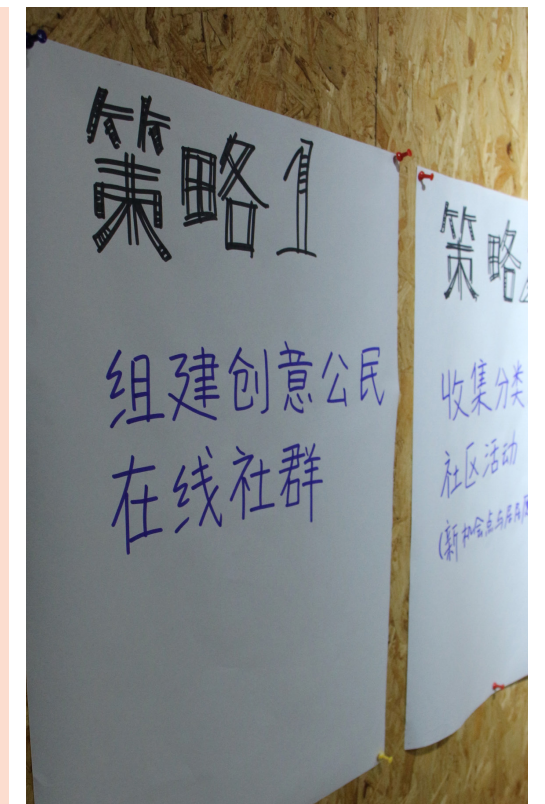 策略1
组建创意公民
在线社群
策略
收集分类
社区活动
(新机会点与居民